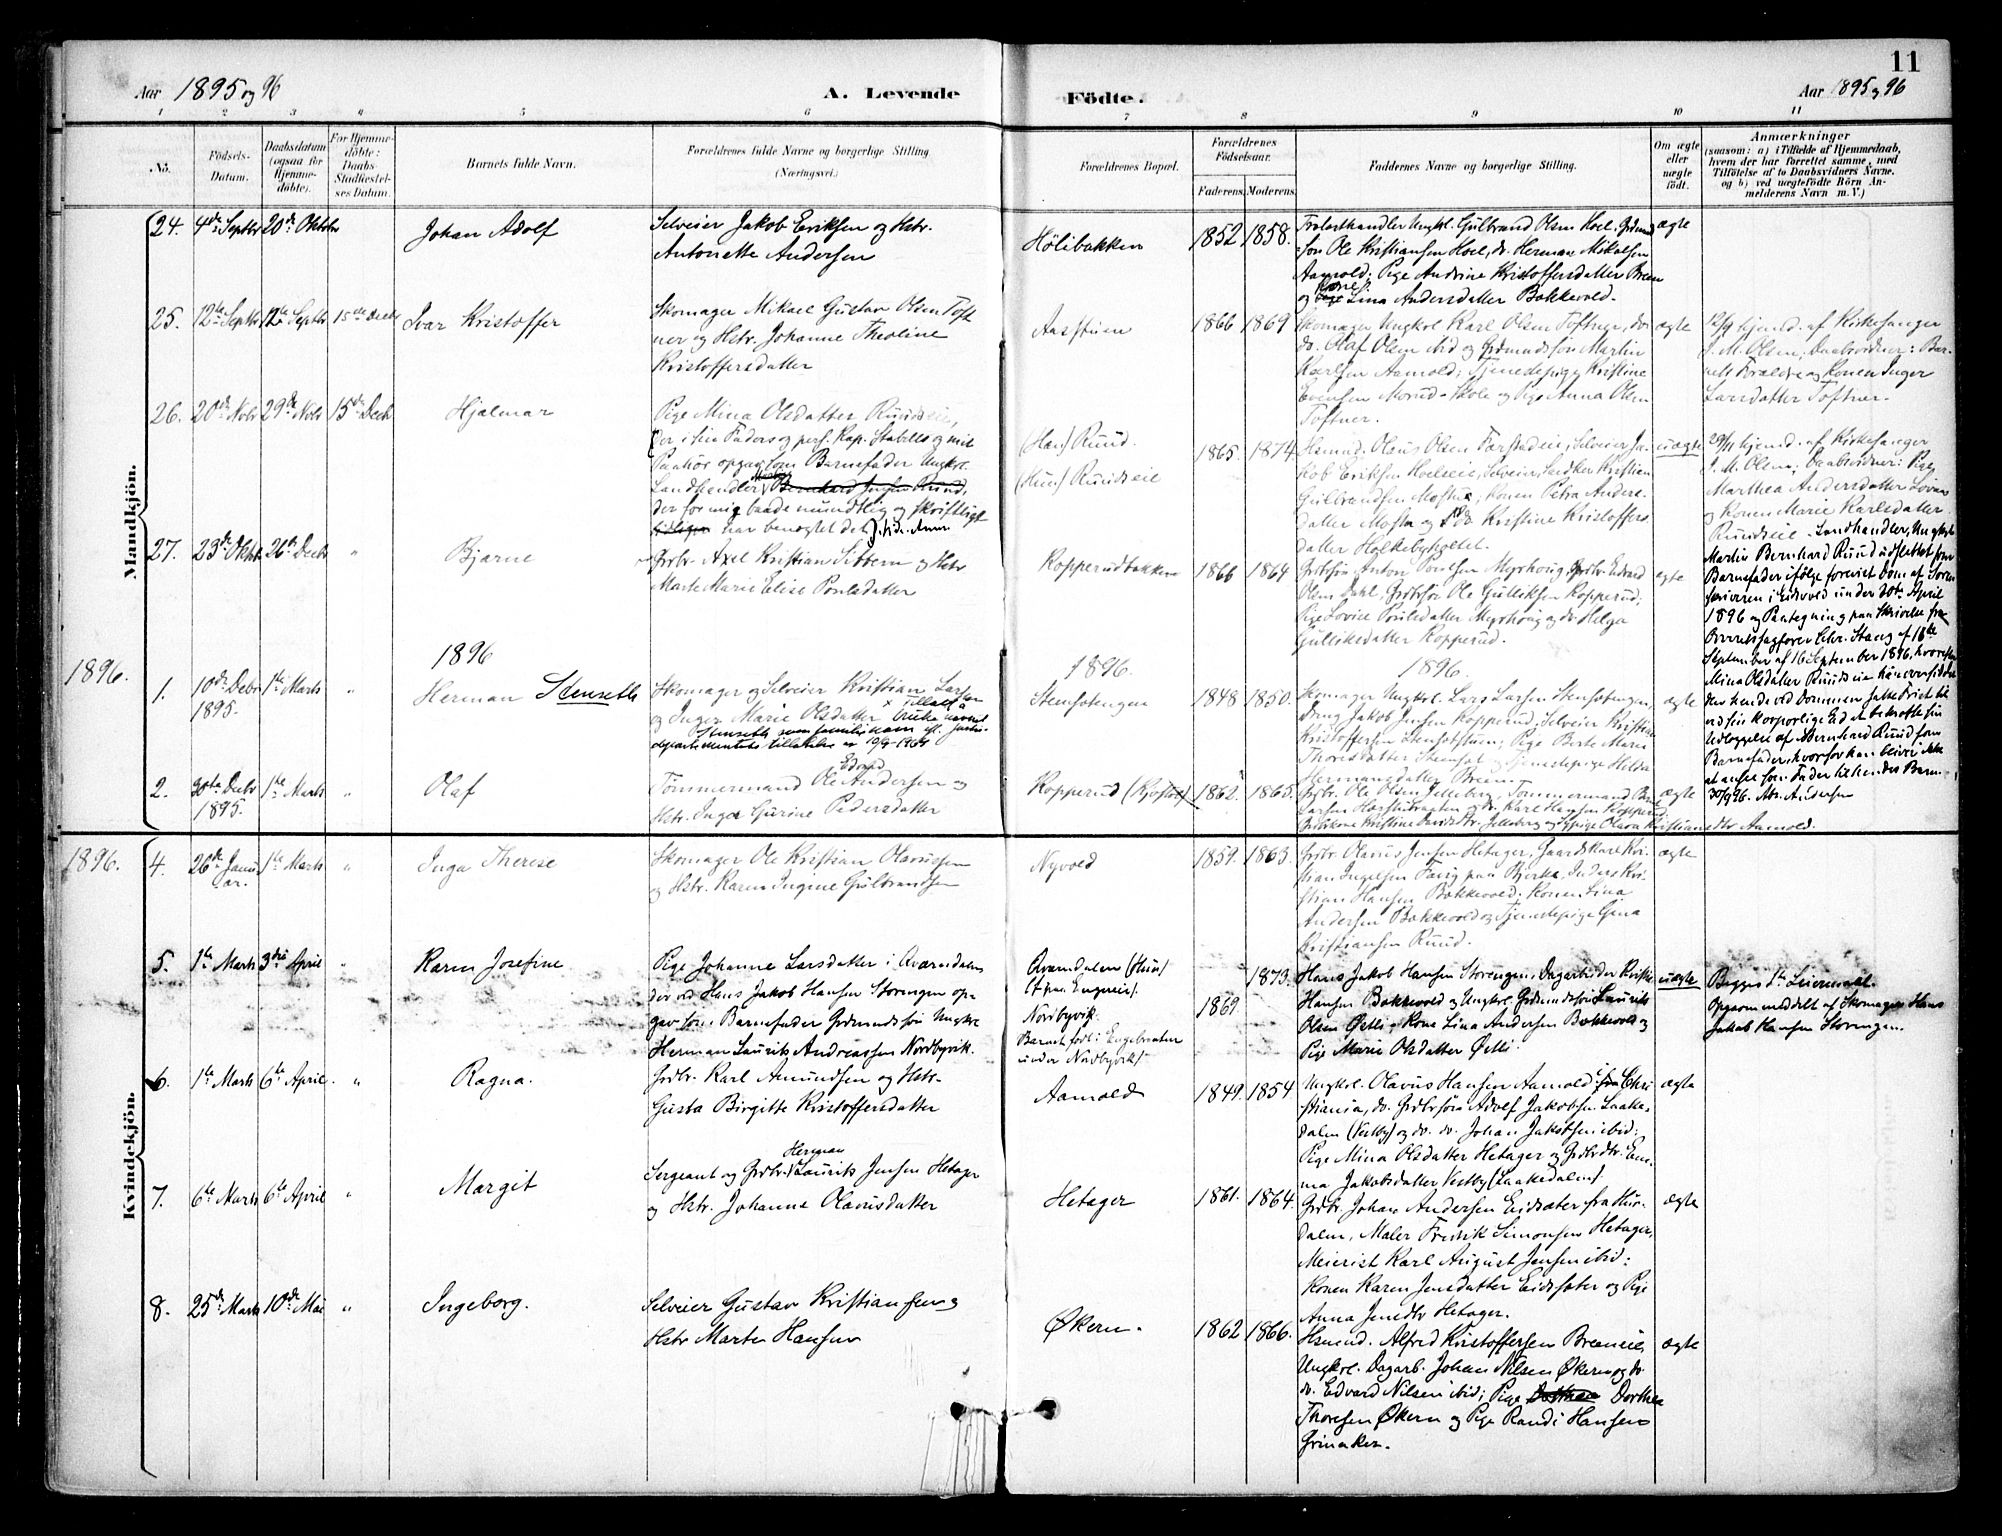 11
Aar 1895 og 96
A. Levende
Födte.
Aar 1895 og 96
1 2 3 4 5 6 7 8 9 10 11
No.
Födsels-Datum.
Daabsdatum (ogsaa for Hjemmedöbte).
For Hjemmedöbte: Daabs Stadfæstelses Datum.
Barnets fulde Navn.
Forældrenes fulde Navne og borgerlige Stilling
(Næringsvei.)
Forældrenes Bopæl.
Forældrenes Födselsaar.
Faderens.
Moderens.
Faddernes Navne og borgerlige Stilling.
Om ægte eller uægte födt.
Anmærkninger
(saasom: a) i Tilfælde af Hjemmedaab, hvem der har forrettet samme, med Tilföielse af to Daabsvidners Navne, og b) ved uægtefödte Börn Anmelderens Navn m. V.)
Mandkjön.
24. 4de Septbr 20de Oktbr
Johan Adolf
Selveier Jakob Eriksen og Hstr.
Antonette Andersen
Hölibakken
1852 1858.
Ungkl. Gulbrand Olsen Hoel, Grdmd
sön Ole Kristiansen Hoel, do. Herman Mikalsen
Aamold; Pige Andrine Kristoffersdatter Breen
og Kone Lina Andersdatter Bakkevold.
ægte
25. 12te Septbr 12te Septbr 15de Decbr
Ivar Kristoffer
Skomager Mikael Gustav Olsen Toft
ner og Hstr. Johanne Theoline
Kristoffersdatter
Aasstuen
1866 1869
Skomager Ungkl. Karl Olsen Toftner, do.
do. Olaf Olsen ibid og Grdmandssön Martin
Karlsen Aamold; Tjenestepige Kristine
Evensen Morud-Skole og Pige Anna Olsen
Toftner.
ægte
12/9 hjemd. af Kirkesanger
J. M. Olsen, Daabsvidner: Bar-
nets Forældre og Konen Inger
Larsdatter Toftner.
26. 20de Novbr 29de Novbr 15de Decbr
Hjalmar
Pige Mina Olsdatter Ruudseie,
der i sin Faders og pers. Kap. Stabells og mit
Paahör opgav som Barnefader Ungkl.
Landhandler Bernhard Jensen Ruud,
der for mig baade mundtlig og skriftligt
har benægtet det
(Han) Ruud.
(Hun) Ruudseie
1865. 1874
Hsmand. Olaus Olsen Forstadeie, Selveier Ja-
kob Eriksen Hoelseie, Selveier Kristian
Gulbrandsen Mostue; Konen Petra Anders-
datter Mostu og do. Kristine Kristoffers-
datter Holkebyholtet.
uægte
29/11 hjemd. af Kirkesanger
J. M. Olsen; Daabsvidner: Pige
Marthea Andersdatter
og Konen Marie Karlsdatter
Ruudseie. Landhandler, Ungkarl
Martin Bernhard Ruud udslettet som
Barnefader ifölge foreviist Dom af Soren-
skriveren i Eidsvold under 20de April
1896 og Paategning paa Skrivelse fra
Overretssagförer Chr. Stang af 18de
September af 16 September 1896, hvorefter
Mina Olsdatter Ruudseie
den hende ved Dommen satte Frist til
ved sin korporlige Ed at bekræfte sin
Udlæggelse af Bernhard Ruud som
Barnefader, hvorfor han bliver ikke
at anse som Fader til hendes Barn.
30/9 96. Abr. Andersen
27. 23de Oktbr 26de Decbr "
Bjarne
Grdbr. Axel Kristian Sibbern og Hstr
Marte Marie Elise Poulsdatter
Kopperudbakken
1866 1864
Grdbrsön Anton Poulsen Myrhoug, Grdbr. Edvard
Olsen Dahl, Grdbrsön Ole Gulliksen Kopperud;
Pige Lovise Poulsdatter Myrhoug og do. Helga
Gulliksdatter Kopperud.
ægte
1896.
1896
1896.
1896.
1. 10de Decbr 1895. 1ste Marts "
Herman Stenseth
Skomager og Selveier Kristian Larsen
og Inger Marie Olsdatter x Tillagt
Stenseth som familienavn efl. justis-
departementets tillatelse av 10/9-1904
Stensetengen
1848 1850.
Skomager Ungkl. Lars Larsen Stensetengen,
Dreng Jakob Jensen Kopperud, Selveier Kristian
Kristoffersen Stensetstuen; Pige Berte Marie
Thorisdatter Stenset og Tjenestepige Helda
Hermansdatter Breen.
ægte
2. 30te Decbr 1895. 1ste Marts "
Olaf
Edvard
Tömmermand Ole Andersen og
Hstr. Inger Gurine Pedersdatter
Kopperud
1862. 1865.
Grdbr. Ole Olsen Jelleberg, Tömmermand
Larsen og do. Karl Hansen Kopperud
ægte
Aamold.
Kvindekjön.
1896.
4. 26de Januar. 1ste Marts "
Inga Therese
Skomager Ole Kristian Olavussen
og Hstr. Karen Ingine Gulbrandsen
Nyvold
1859. 1863.
Grdbr. Olavus Jensen Hetager, Gaardskarl Kri-
stian Ingelsen Tosig paa Bjerke, Inders Kri-
stian Hansen Bakkevold; Konen Lina
Andersen Bakkevold og Tjenestepige Gina
Kristiansen Ruud.
ægte
5. 1ste Marts 3die April "
Karen Josefine
Pige Johanne Larsdatter i Qværndalen
der ved Hans Jakob Hansen Storengen op-
gav som Barnefader Grdmandssön Ungkl
Herman Laurits Andreassen Nordbyvik.
Qværndalen (Hun)
Nordbyvik.
Barnet födt i Engebraaten
under Nordbyvik.
1869. 1873.
Hans Jakob Hansen Storengen, Dagarbeider Kristian
Hansen Bakkevold og Ungkl. Grdmandssön Laurits
Olsen Østli; Kone Lina Andersen Bakkevold og
Pige Marie Olsdatter Østli.
uægte
Begges 1ste Leiermaal.
Opgivet meddelt af Skomager Hans
Jakob Hansen Storengen.
6. 1ste Marts 6te April "
Ragna.
Grdbr. Karl Amundsen og Hstr.
Gusta Birgitte Kristoffersdatter
Aamold
1849. 1854
Ungkl. Olavus Hansen Aamold i Chri-
stiania, do. Grdbrsön Adolf Jakobsen Laake-
dalen (Vestby) og do. do. Johan Jakobsen ibid;
Pige Mina Olsdatter Hetager og Grdbrdtr. Em-
ma Jakobsdatter Vestby (Laakedalen).
ægte
7. 6te Marts 6te April "
Margit
Herman
Sergeant og Grdbr. Laurits Jensen Hetager
og Hstr. Johanne Olavusdatter
Hetager
1861. 1864.
Grdbr. Johan Andersen Eidsæter fra Hur-
dalen, Maler Fredrik Simonsen Hetager,
Meierist Karl August Jensen ibid;
Konen Karen Jensdatter Eidsæter og Pige
Anna Jensdtr Hetager.
ægte
8. 25de Marts 10de Mai "
Ingeborg.
Selveier Gustav Kristiansen og
Hstr Marte Hansen
Økern.
1862 1866.
Hsmand. Alfred Kristoffersen Breeneie,
Ungkl. Dagarb. Johan Nilsen Økern og do
do. Edvard Nilsen ibid; Pige Dorthea
Thoresen Økern og Pige Randi Hansen
Grinaker.
ægte